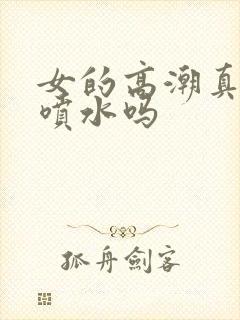 女的高潮真
喷水吗
孤舟劍客